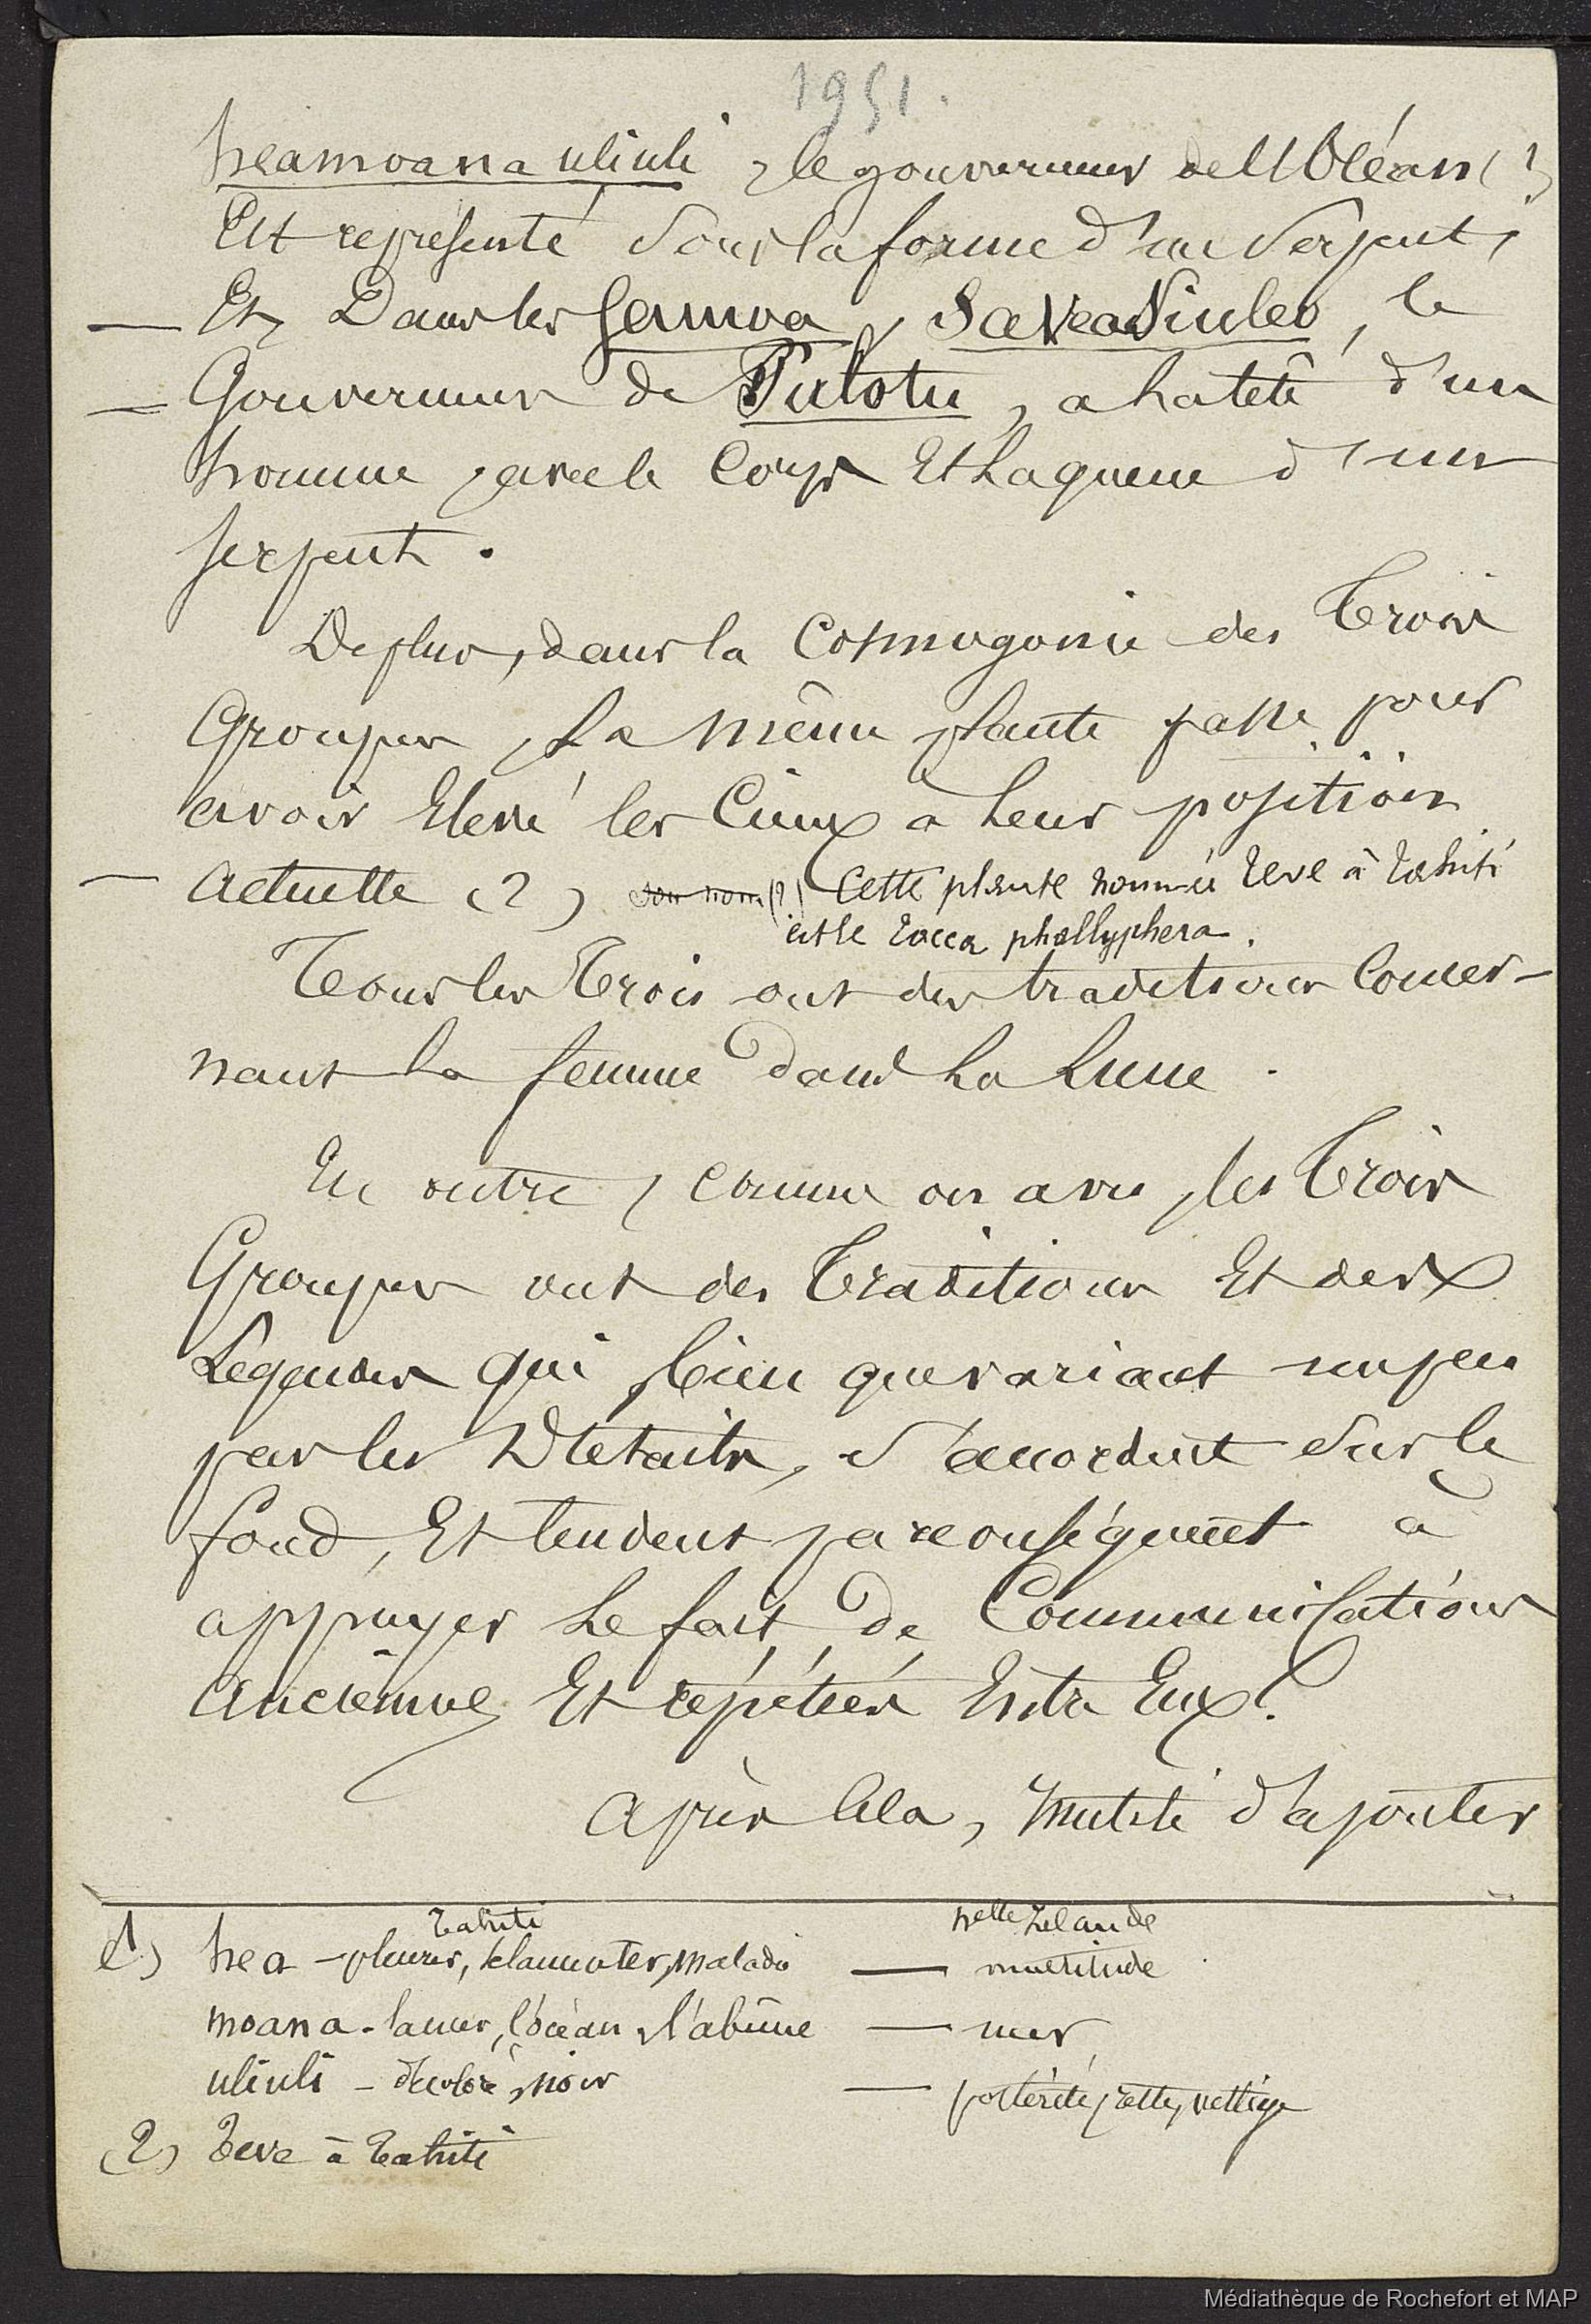 1951.
heamoana uliuli, le gouverneur de l'Océan (1)
Est représenté Sous la forme d'un Serpent,
— Et, Dans les Samoa, SaveaSiuleo, le
— Gouverneur de Pulotu, a la tête d'un
homme, avec le Corps Et la queue d'un
serpent.
De plus, dans la Cosmogonie des Trois
Groupes, la même plante passe pour
avoir Elevé les Cieux à leur position
— actuelle (2) son nom (?) Cette plante nommée Teve à Tahiti
est le Tacca phallyphera.
Tous les Trois ont des traditions Concer-
nant la femme dans la Lune.
En outre, comme on a vu, les Trois
Groupes ont des Traditions Et des
Légendes qui, bien que variant un peu
par les Détails, s'accordent sur le
fond, Et tendent par conséquent à
appuyer le fait de Communications
Anciennes Et répétées Entre Eux.
Après Cela, Inutile d'ajouter
Tahiti nelle Zélande
(1) hea - pleurer, se lamenter, maladie — multitude
moana - la mer, l'océan, l'abîme — mer
uliuli - décoloré, noir — postérité, reste, vestige
(2) Teve à Tahiti
Médiathèque de Rochefort et MAP